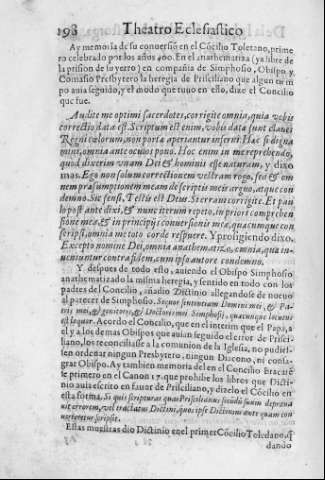 198 Theatro Eclesiastico
Ay memoria de su conuersiõ en el Cõcilio Toletano, prime
ro celebrado por los años 400. En el anathematiza (ya libre de
la prision de su yerro) en compañia de Simphosio, Obispo, y
Comasio Presbytero la heregia de Prisciliano que algun tiem
po auia seguido, y el modo que tuuo en esto, dize el Concilio
que fue.
Audite me optimi sacerdotes, corrigite omnia, quia vobis
correctio data est. Scriptum est enim, vobis datæ sunt claues
Regni cœlorum, non portæ aperiantur inferni. Hæc si digna
mini, omnia ante oculos pono. Hoc enim in me reprehendo,
quod dixerim vnam Dei & hominis esse naturam, y dixo
mas. Ego non solum correctionem vestram rogo, sed & om
nem præsumptionem meam de scriptis meis arguo, atque con
demno. Sic sensi, Testis est Deus. Si errauit corrigite. Et pau
lo post ante dixi, & nunc iterum repeto, in priori comprehen
sione mea, & in principijs conuersionis meæ, quacumque con
scripsi, omnia me toto corde respuere. Y prosiguiendo dixo.
Excepto nomine Dei, omnia anathematizo, omnia, quæ in-
ueniuntur contra fidem, cum ipso autore condemno.
Y despues de todo esto, auiendo el Obispo Simphosio
anathematizado la misma heregia, y sentido en todo con los
padres del Concilio, añadio Dictinio allegandose de nueuo
al parecer de Simphosio. Sequor sententiam Domini mei, & Pa-
tris mei, & genitoris, & Doctoris mei Simphosij, quæcunque locutus
est loquor. Acordo el Concilio, que en el interim que el Papa, a
el y a los demas Obispos que auian seguido el error de Prisci-
liano, los reconciliasse a la comunion de la Iglesia, no pudies-
sen ordenar ningun Presbytero, ningun Diacono, ni consa-
grar Obispo. Ay tambien memoria del en el Concilio Bracarẽ
se primero en el Canon 17. que prohibe los libros que Dicti-
nio auia escrito en fauor de Prisciliano, y dizelo el Cõcilio en
esta forma. Si quis scripturas quas Priscillianus secũdũ suum deprana
uit errorem, vel tractatus Dictini, quos ipse Dictinius ante quam con
uerteretur scripsit.
Estas muestras dio Dictinio en el primer Cõcilio Toledano, q̃
dando